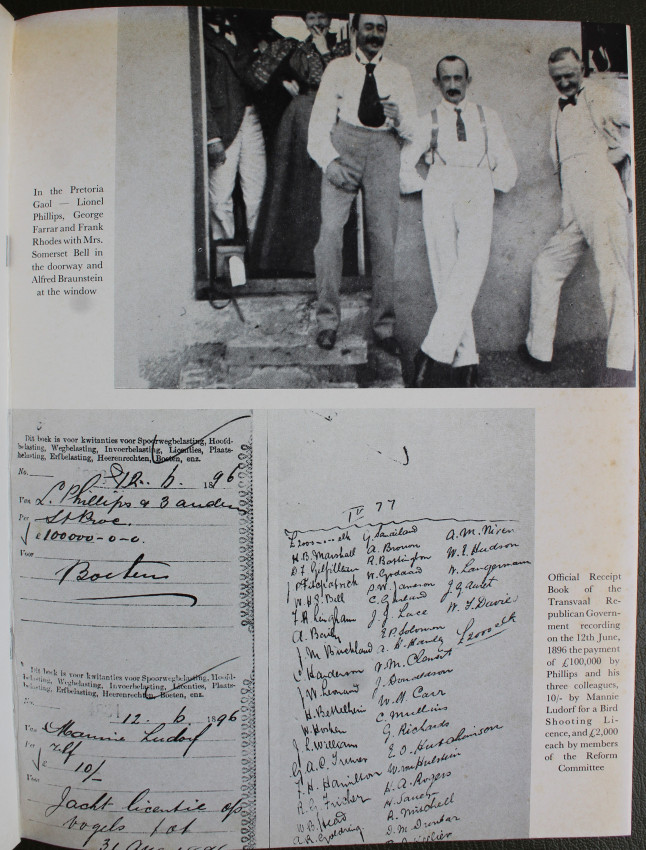 In the Pretoria
Gaol — Lionel
Phillips, George
Farrar and Frank
Rhodes with Mrs.
Somerset Bell in
the doorway and
Alfred Braunstein
at the window
Dit boek is voor kwitanties voor Spoorwegbelasting, Hoofd-
belasting, Wegbelasting, Invoerbelasting, Licenties, Plaats-
belasting, Erfbelasting, Heerenrechten, Boeten, enz.
No. 12. 6. 1896
Van L. Phillips & 3 anderen
Per St Proc.
£ 100000-0-0.
Voor
Boetens
Dit boek is voor kwitanties voor Spoorwegbelasting, Hoofd-
belasting, Wegbelasting, Invoerbelasting, Licenties, Plaats-
belasting, Erfbelasting, Heerenrechten, Boeten, enz.
12. 6. 1896
Van Mannie Ludorf
Per Zelf
£ 10/-
Voor
Jacht licentie op
vogels tot
77
£2000 elk
H.B. Marshall
J P Fitzpatrick
W.H.S. Bell
F.H. Lingham
A. Bailey
J.M. Buckland
C Hyderman
J.W. Leonard
H. Bettelheim
W. Hosken
G.A.O. Trewer
F.H. Hamilton
R.G. Fricker
W B Head
A.R. Goldring
A. Brown
W. Goddard
S.W. Jameson
C. Garland
J.J. Lace
E.P. Solomon
A. M. Hawley
V.M. Clement
J. Donaldson
W. H Carr
C. Mullins
G Richards
E.O. Hutchinson
W. van Hulsteyn
H.A. Rogers
A. Mitchell
D.M. Dunbar
A.M. Niven
W.E. Hudson
W. Langermann
W. T. Davies
£2000 elk
Official Receipt
Book of the
Transvaal Re-
publican Govern-
ment recording
on the 12th June,
1896 the payment
of £100,000 by
Phillips and his
three colleagues,
10/- by Mannie
Ludorf for a Bird
Shooting Li-
cence, and £2,000
each by members
of the Reform
Committee